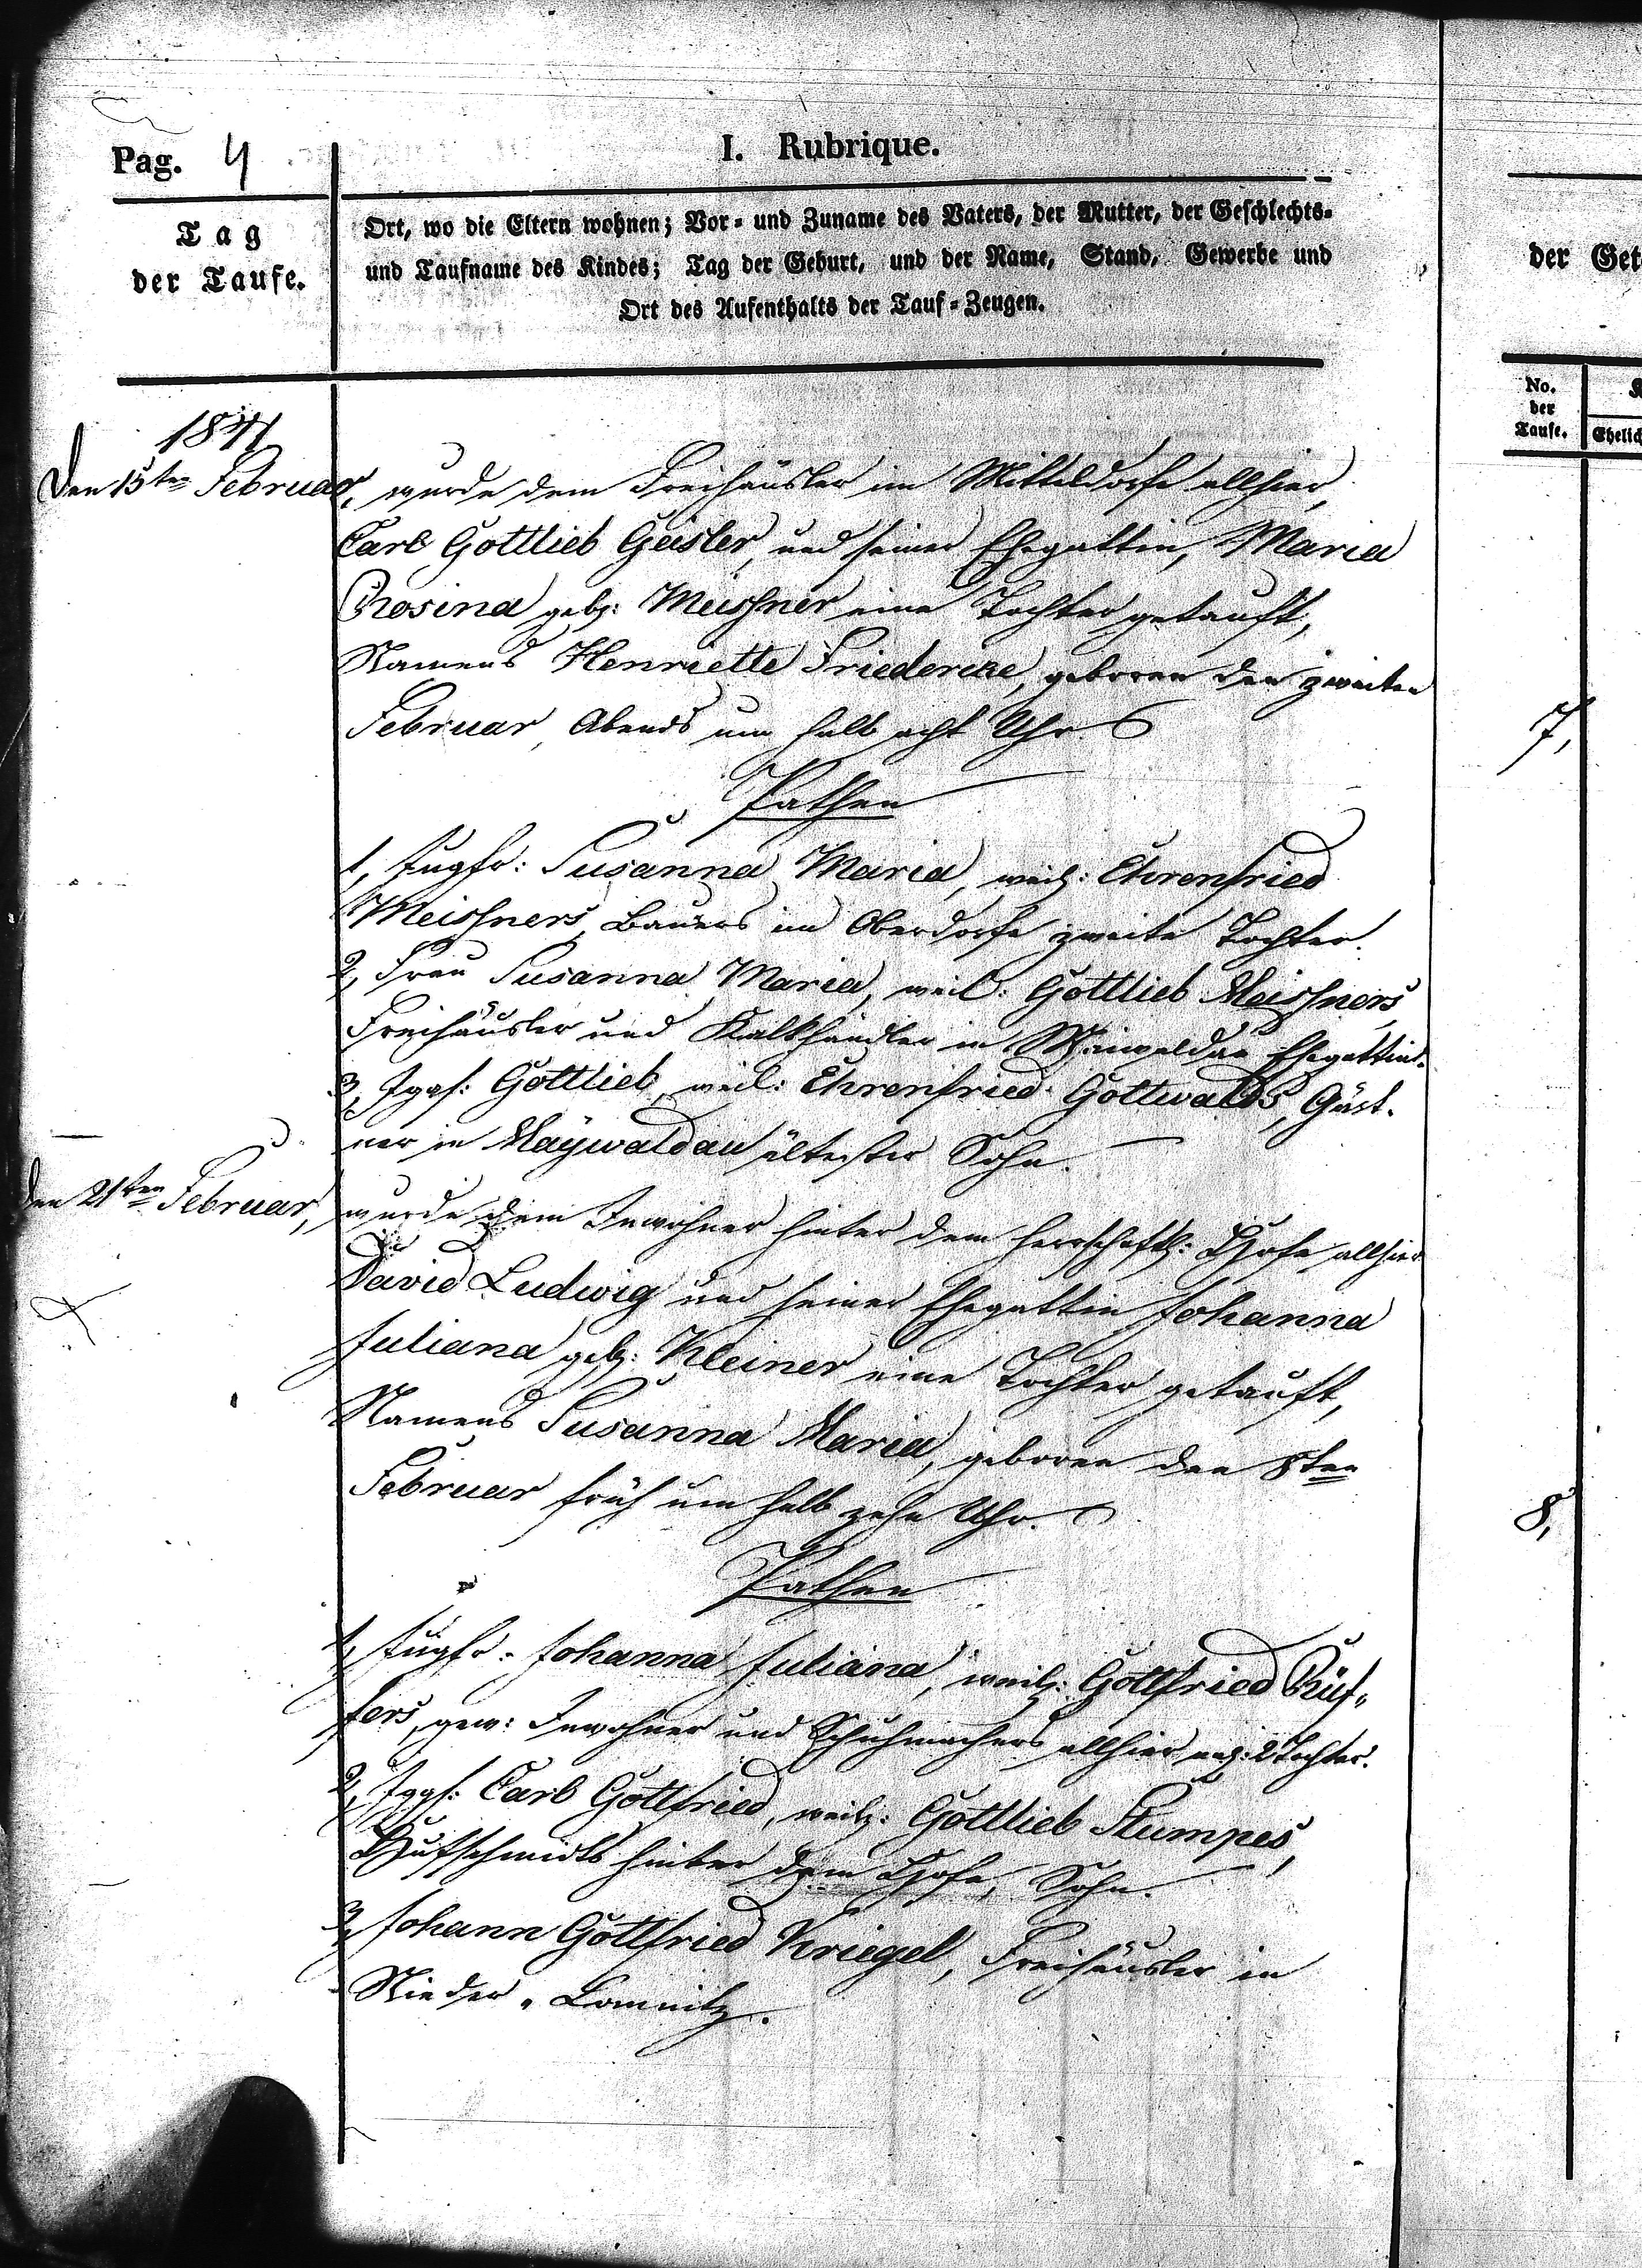 Pag. 4
I. Rubrique.
Tag
der Taufe.
Ort, wo die Eltern wohnen; Vor- und Zuname des Vaters, der Mutter, der Geschlechts-
und Taufname des Kindes; Tag der Geburt, und der Name, Stand, Gewerbe und
Ort des Aufenthalts der Tauf-Zeugen.
der Get
No.
der
Taufe.
Ehelich
1841
Den 15ten Februar, wurde dem Freihäusler im Mitteldorfe allhier,
Carl Gottlieb Geisler, und seiner Ehegattin, Maria
Rosina geb: Meissner eine Tochter getauft,
Namens Henriette Friedericke, geboren den zweiten
Februar, Abends um halb acht Uhr.
7,
Pathen
1, Jugfr: Susanna Maria, weil: Ehrenfried
Meissners, Bauers im Oberdorfe zweite Tochter.
2, Frau Susanna Maria, weil: Gottlieb Meissners,
Freihäusler und Kalkhändler in Maiwaldau Ehegattin.
3, Jggs: Gottlieb, weil: Ehrenfried Gottwalds, Gärt-
ner in Maywaldau ältester Sohn.
Den 21ten Februar, wurde dem Inwohner hinter dem herrschaftl: Hofe allhier
David Ludwig und seiner Ehegattin Johanna
Juliana geb: Kleiner eine Tochter getauft,
Namens Susanna Maria, geboren den 8ten
Februar früh um halb zehn Uhr.
8,
Pathen
1, Jugfr: Johanna Juliana, weil: Gottfried Rüf-
fers, gew: Inwohner und Schuhmachers allhier 2 Tochter.
2, Jggs: Carl Gottfried, weil: Gottlieb Stumpes,
Hufschmidts hinter dem Hofe, Sohn.
3, Johann Gottfried Kriegel, Freihäusler in
Nieder-Lomnitz.